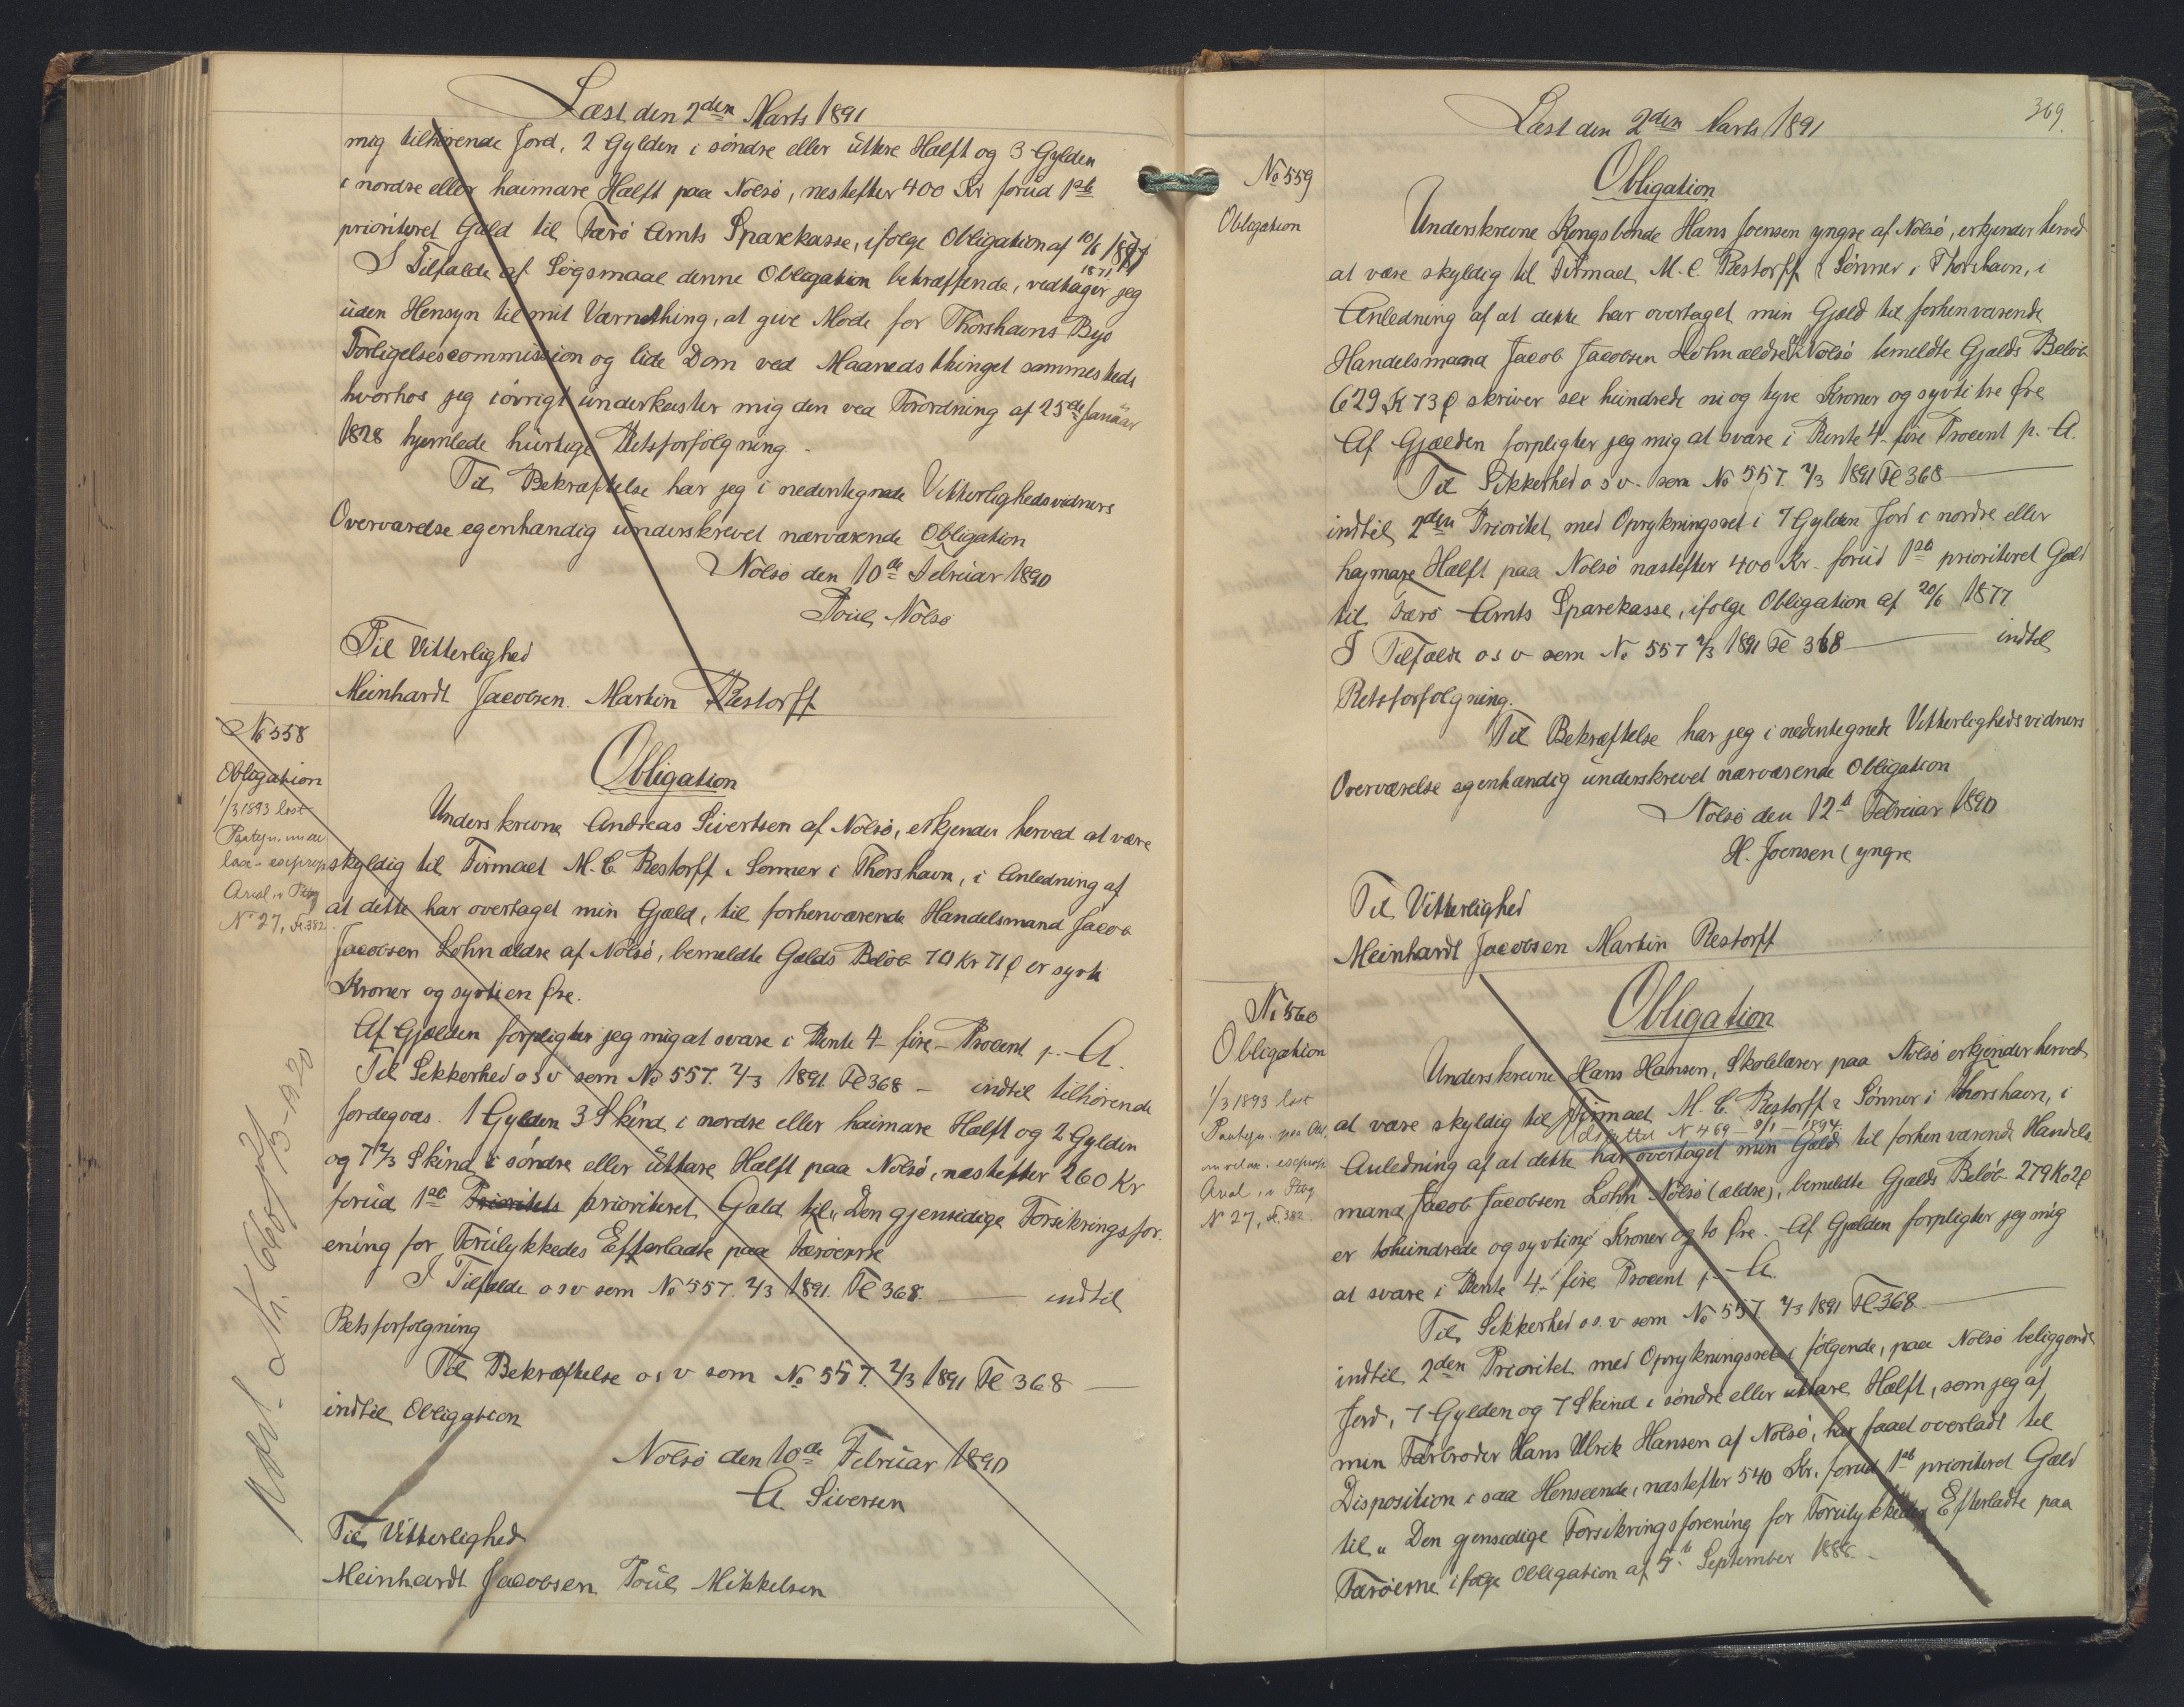 Læst den 2den Marts 1891
mig tilhørende Jord, 2 Gylden i søndre eller üttere Halft og 3 Gylden
i nordre eller haimare Hælft paa Nolsø, nestefter 400 Kr forud 1ste
prioriteret Gæld til Færø Amts Sparekasse, ifølge Obligation af 10/6
1877
I Tilfælde af Søgsmaal denne Obligation betræffende, vedtager jeg
uden Hensyn til mit Værnething, at give Møde for Thorshavns Byes
Forligelsescommission og lide Dom ved Maanedsthinget sammesteds
hvorhos jeg iøvrigt underkaster mig den ved Forordning af 25de Januar
1828 hjemlede hurtige Retsforfølgning.
Til Bekræftelse har jeg i nedentegnede Vitterlighedsvidners
Overværelse egenhændig underskrevet nærværende Obligation
Nolsø den 10de Februar 1890
Poul Nolsø
Til Vitterlighed
Meinhardt Jacobsen. Martin Restorff
No 558
Obligation
1/3 1893 læst
No 27, Fl. 382
Obligation
Underskrevne Andreas Sivertsen af Nolsø, erkjender herved at være
skyldig til Firmaet M. C. Restorff & Sønner i Thorshavn, i Anledning af
at dette har overtaget min Gjæld, til forhenværende Handelsmand Jacob
Jacobsen Løhn ældre af Nolsø, bemeldte Gælds Beløb 70 Kr 71 Ø er syvti
Kroner og syvtien Øre.
Af Gjælden forpligter jeg mig at svare i Rente 4 - fire - Procent p. A.
Til Sikkerhed o s v som No 557. 2/3 1891 Fl 368 - indtil tilhørende
Jordegods. 1 Gylden 3 Skind i nordre eller haimare Hælft og 2 Gylden
og 7 2/3 Skind i søndre eller üttare Hælft paa Nolsø, næstefter 260 Kr
forud 1ste Prioritets prioriteret Gæld til "Den gjensidige Forsikringsfor
ening for Forulykkedes Efterladte paa Færøerne
I Tilfælde o s v som No 557. 2/3 1891. Fl 368. indtil
Retsforfølgning
Til Bekræftelse o s v som No 557. 2/3 1891 Fl 368
indtil Obligation
Nolsø den 10de Februar 1890
A. Siversen
Til Vitterlighed
Meinhardt Jacobsen Poul Mikkelsen
369.
Læst den 2den Marts 1891
No 559
Obligation
Obligation
Underskrevne Kongsbonde Hans Joensen yngre af Nolsø, erkjender herved
at være skyldig til Firmaet M. C. Restorff & Sønner i Thorshavn, i
Anledning af at dette har overtaget min Gjæld til forhenværende
Handelsmand Jacob Jacobsen Løhn ældre Nolsø bemeldte Gjælds Beløb
629 K 73 Ø skriver sex hundrede ni og tyve Kroner og syvti tre Øre
Af Gjælden forpligter jeg mig at svare i Rente 4 - fire Procent p. A.
Til Sikkerhed o s v. som No 557. 2/3 1891 Fl 368
indtil 2den Prioritet med Oprykningsret i 7 Gylden Jord i nordre eller
hajmare Hælft paa Nolsø næstefter 400 Kr. forud 1ste prioriteret Gæld
til Færø Amts Sparekasse, ifølge Obligation af 20/6 1877
I Tilfælde o s v som No 557 2/3 1891 Fl 368 indtil
Retsforfølgning.
Til Bekræftelse har jeg i nedentegnede Vitterlighedsvidners
Overværelse egenhændig underskrevet nærværende Obligation
Nolsø den 12te Februar 1890
H. Joensen (yngre
Til Vitterlighed
Meinhardt Jacobsen Martin Restorff
No 560
Obligation
1/3 1893 læst
No 27, Fl. 382.
Obligation
Underskrevne Hans Hansen, Skolelærer paa Nolsø erkjender herved
at være skyldig til Firmaet M. C. Restorff & Sønner i Thorshavn, i
Udslettet N 469 - 8/1 - 1894.
Anledning af at dette har overtaget min Gjæld til forhenværende Handels
mand Jacob Jacobsen Løhn Nolsø (ældre), bemeldte Gjælds Beløb 279 K 02 Ø
er tohundrede og syvtini Kroner og to Øre. Af Gjælden forpligter jeg mig
at svare i Rente 4 - fire Procent p. A.
Til Sikkerhed o s. v som No 557. 2/3 1891 Fl 368
indtil 2den Prioritet med Oprykningsret i følgende, paa Nolsø beliggende
Jord, 7 Gylden og 7 Skind i søndre eller uttare Hælft, som jeg af
min Farbroder Hans Ulrik Hansen af Nolsø, har faaet overladt til
Disposition i saa Henseende, næstefter 540 Kr. forud 1ste prioriteret Gæld
til "Den gjensidige Forsikringsforening for Forulykkedes Efterladte paa
Færøerne ifølge Obligation af 5te September 1888.